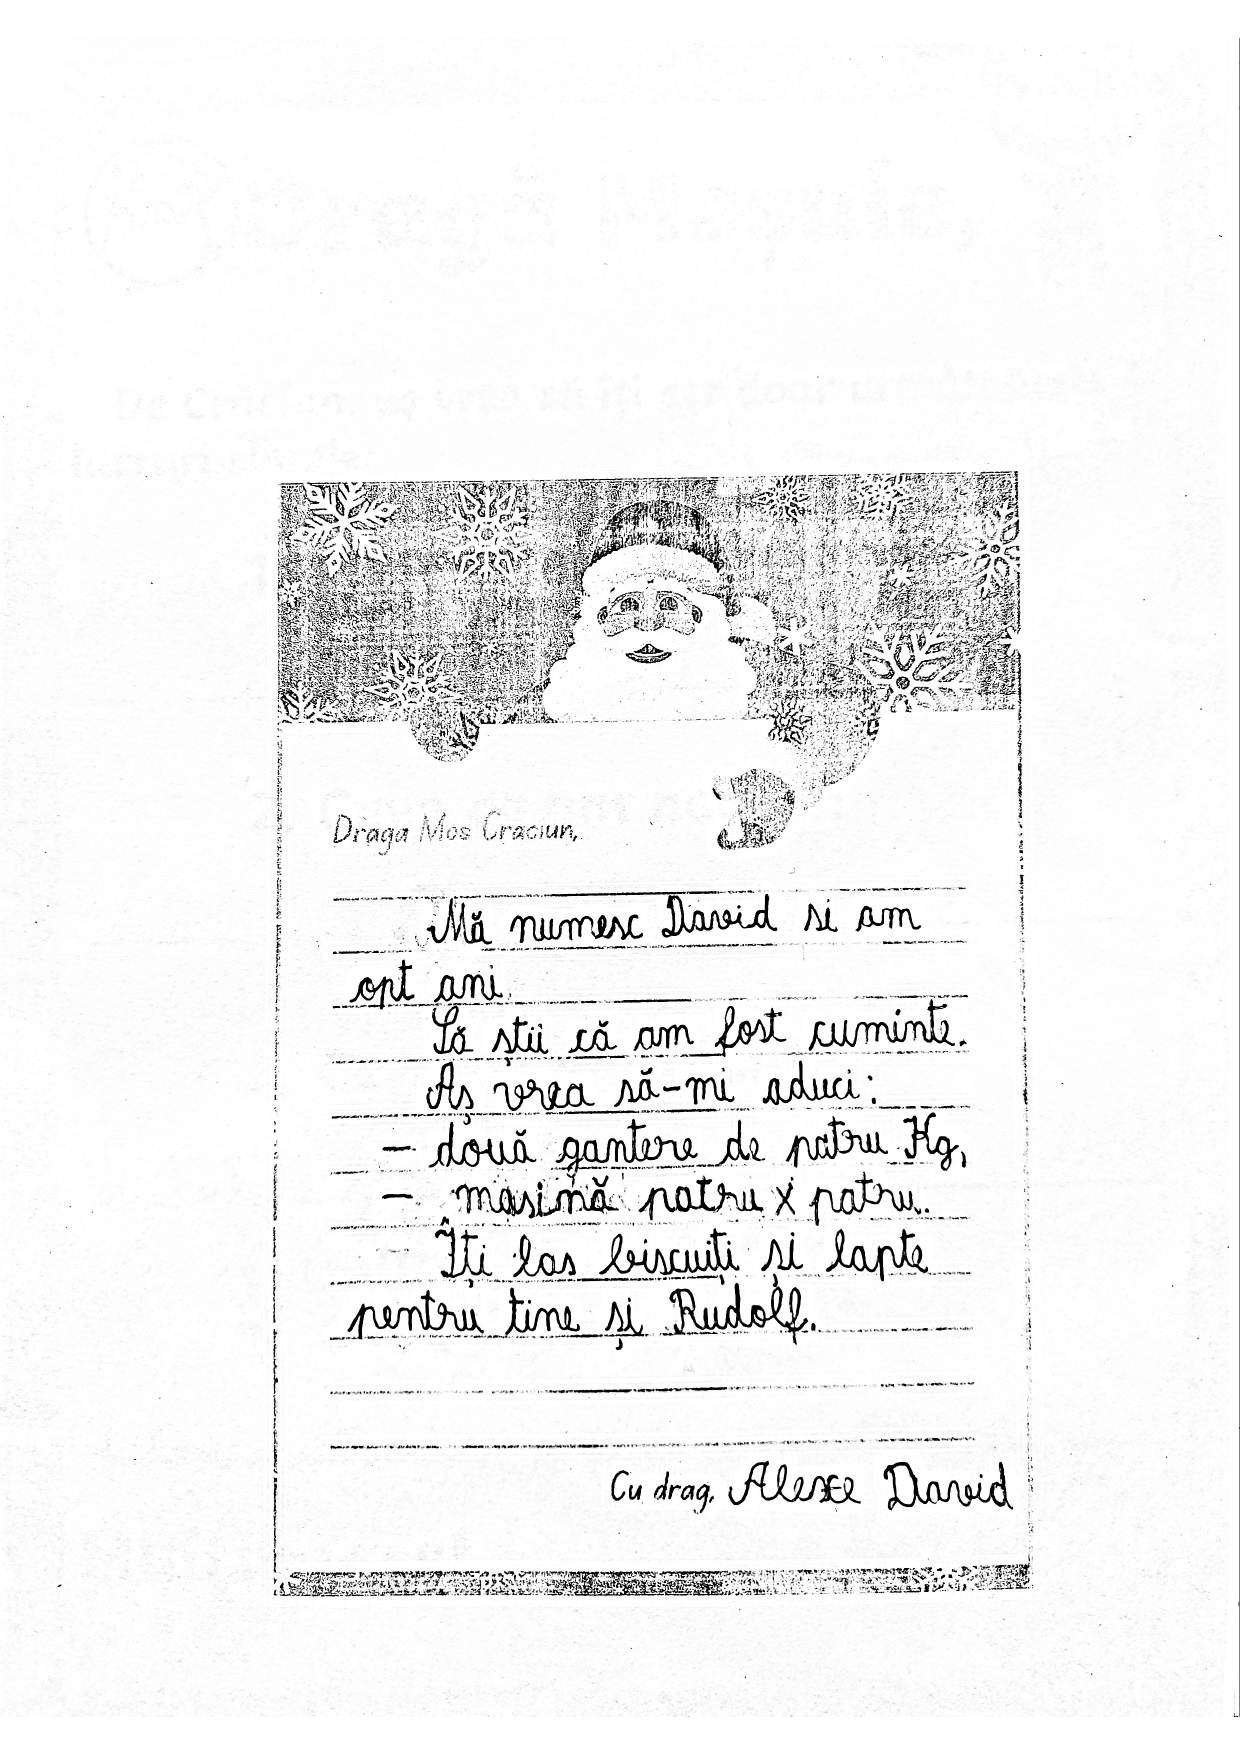 Draga Mos Craciun,
Mă numesc David si am
opt ani.
Să știi că am fost cuminte.
Aș vrea să-mi aduci:
- două gantere de patru Kg,
- masină patru x patru.
Îți las biscuiți și lapte
pentru tine și Rudolf.
Cu drag, Alexe David